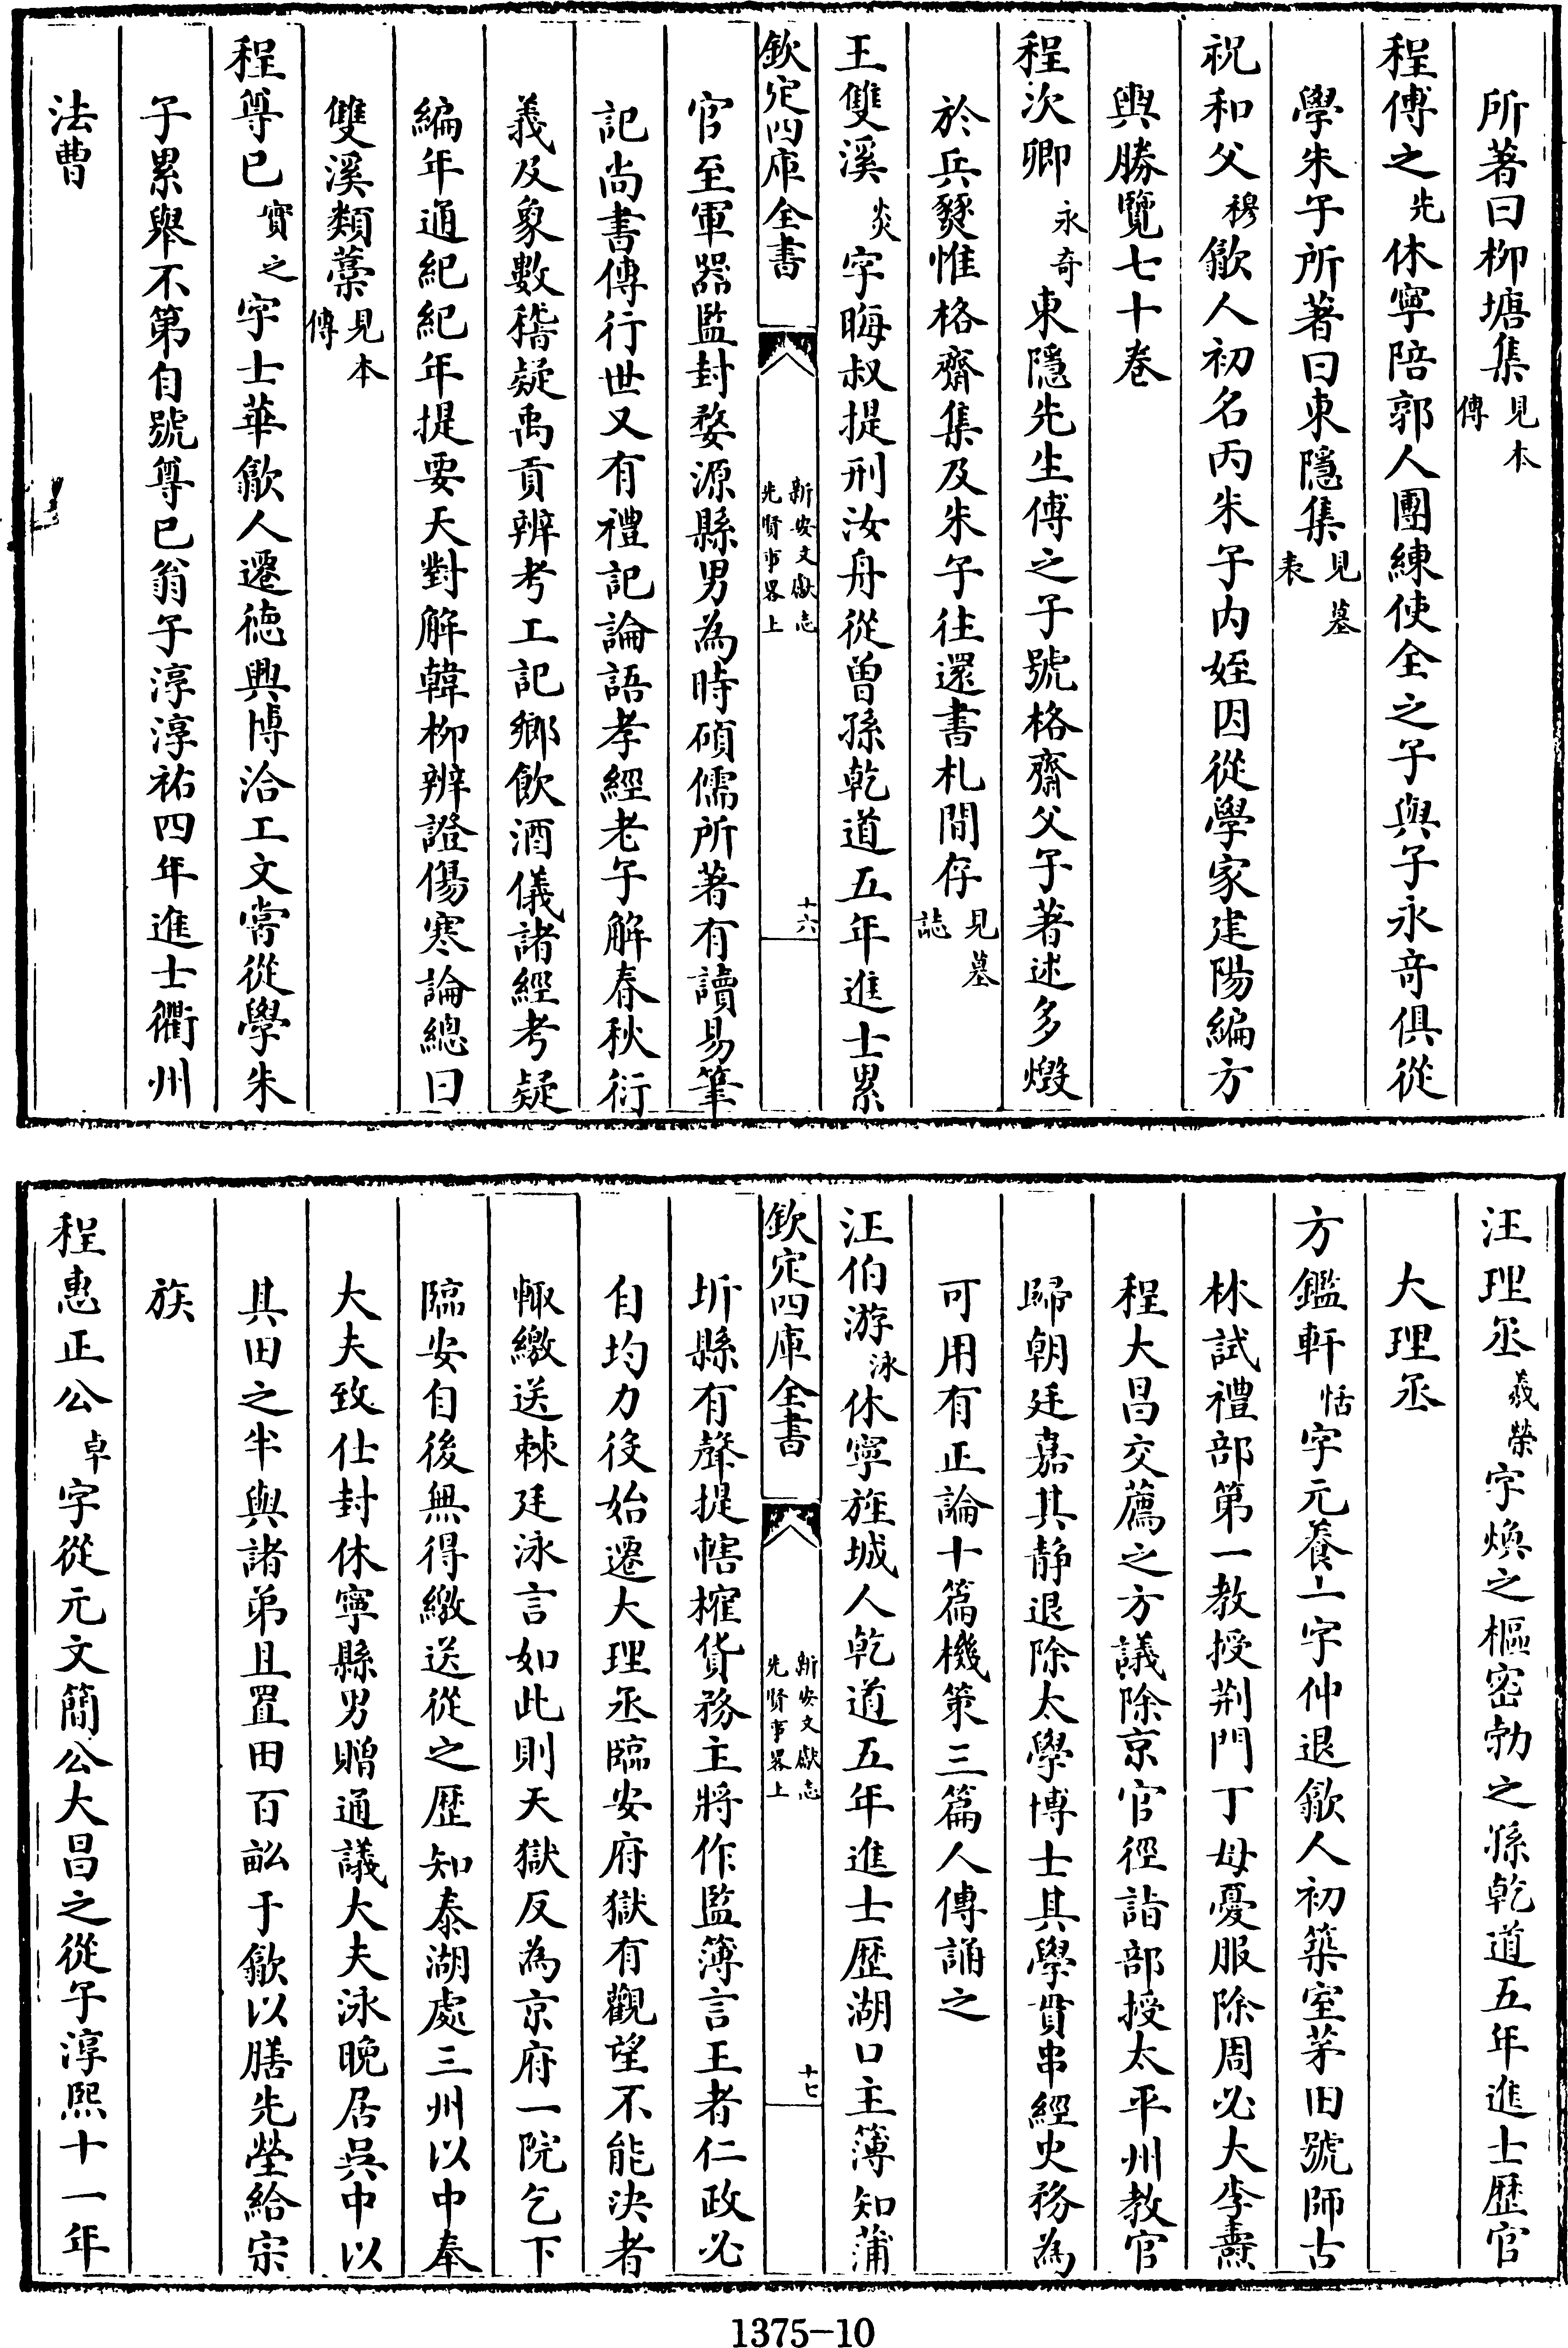 所著曰柳塘集見本傳
程傅之先休寧陪郭人團練使全之子與子永奇俱從
學朱子所著曰東隱集見墓表
祝和父穆歙人初名丙朱子内姪因從學家建陽編方
輿勝覽七十卷
程次卿永奇東隱先生傅之子號格齋父子著述多燬
於兵燹惟格齋集及朱子往還書札間存見墓誌
王雙溪炎字晦叔提刑汝舟從曾孫乾道五年進士累
欽定四庫全書
新安文獻志先賢事畧上
十六
官至軍器監封婺源縣男為時碩儒所著有讀易筆
記尚書傳行世又有禮記論語孝經老子解春秋衍
義及象數稽疑禹貢辨考工記鄉飲酒儀諸經考疑
編年通紀紀年提要天對解韓柳辨證傷寒論總曰
雙溪類藳見本傳
程尊已實之字士華歙人遷德興博洽工文嘗從學朱
子累舉不第自號尊已翁子淳淳祐四年進士衢州
法曹
汪理丞義榮字煥之樞密勃之孫乾道五年進士歴官
大理丞
方鑑軒恬字元養一字仲退歙人初築室茅田號師古
林試禮部第一教授荆門丁母憂服除周必大李燾
程大昌交薦之方議除京官徑詣部授太平州教官
歸朝廷嘉其静退除太學博士其學貫串經史務為
可用有正論十篇機策三篇人傳誦之
汪伯游泳休寧旌城人乾道五年進士歴湖口主簿知蒲
欽定四庫全書
新安文獻志先賢事畧上
十七
圻縣有聲提轄榷貨務主將作監簿言王者仁政必
自均力役始遷大理丞臨安府獄有觀望不能決者
輙繳送棘廷泳言如此則天獄反為京府一院乞下
臨安自後無得繳送從之歴知泰湖處三州以中奉
大夫致仕封休寧縣男贈通議大夫泳晚居吳中以
其田之半與諸弟且置田百畝于歙以膳先塋給宗
族
程惠正公卓字從元文簡公大昌之從子淳熙十一年
1375-10